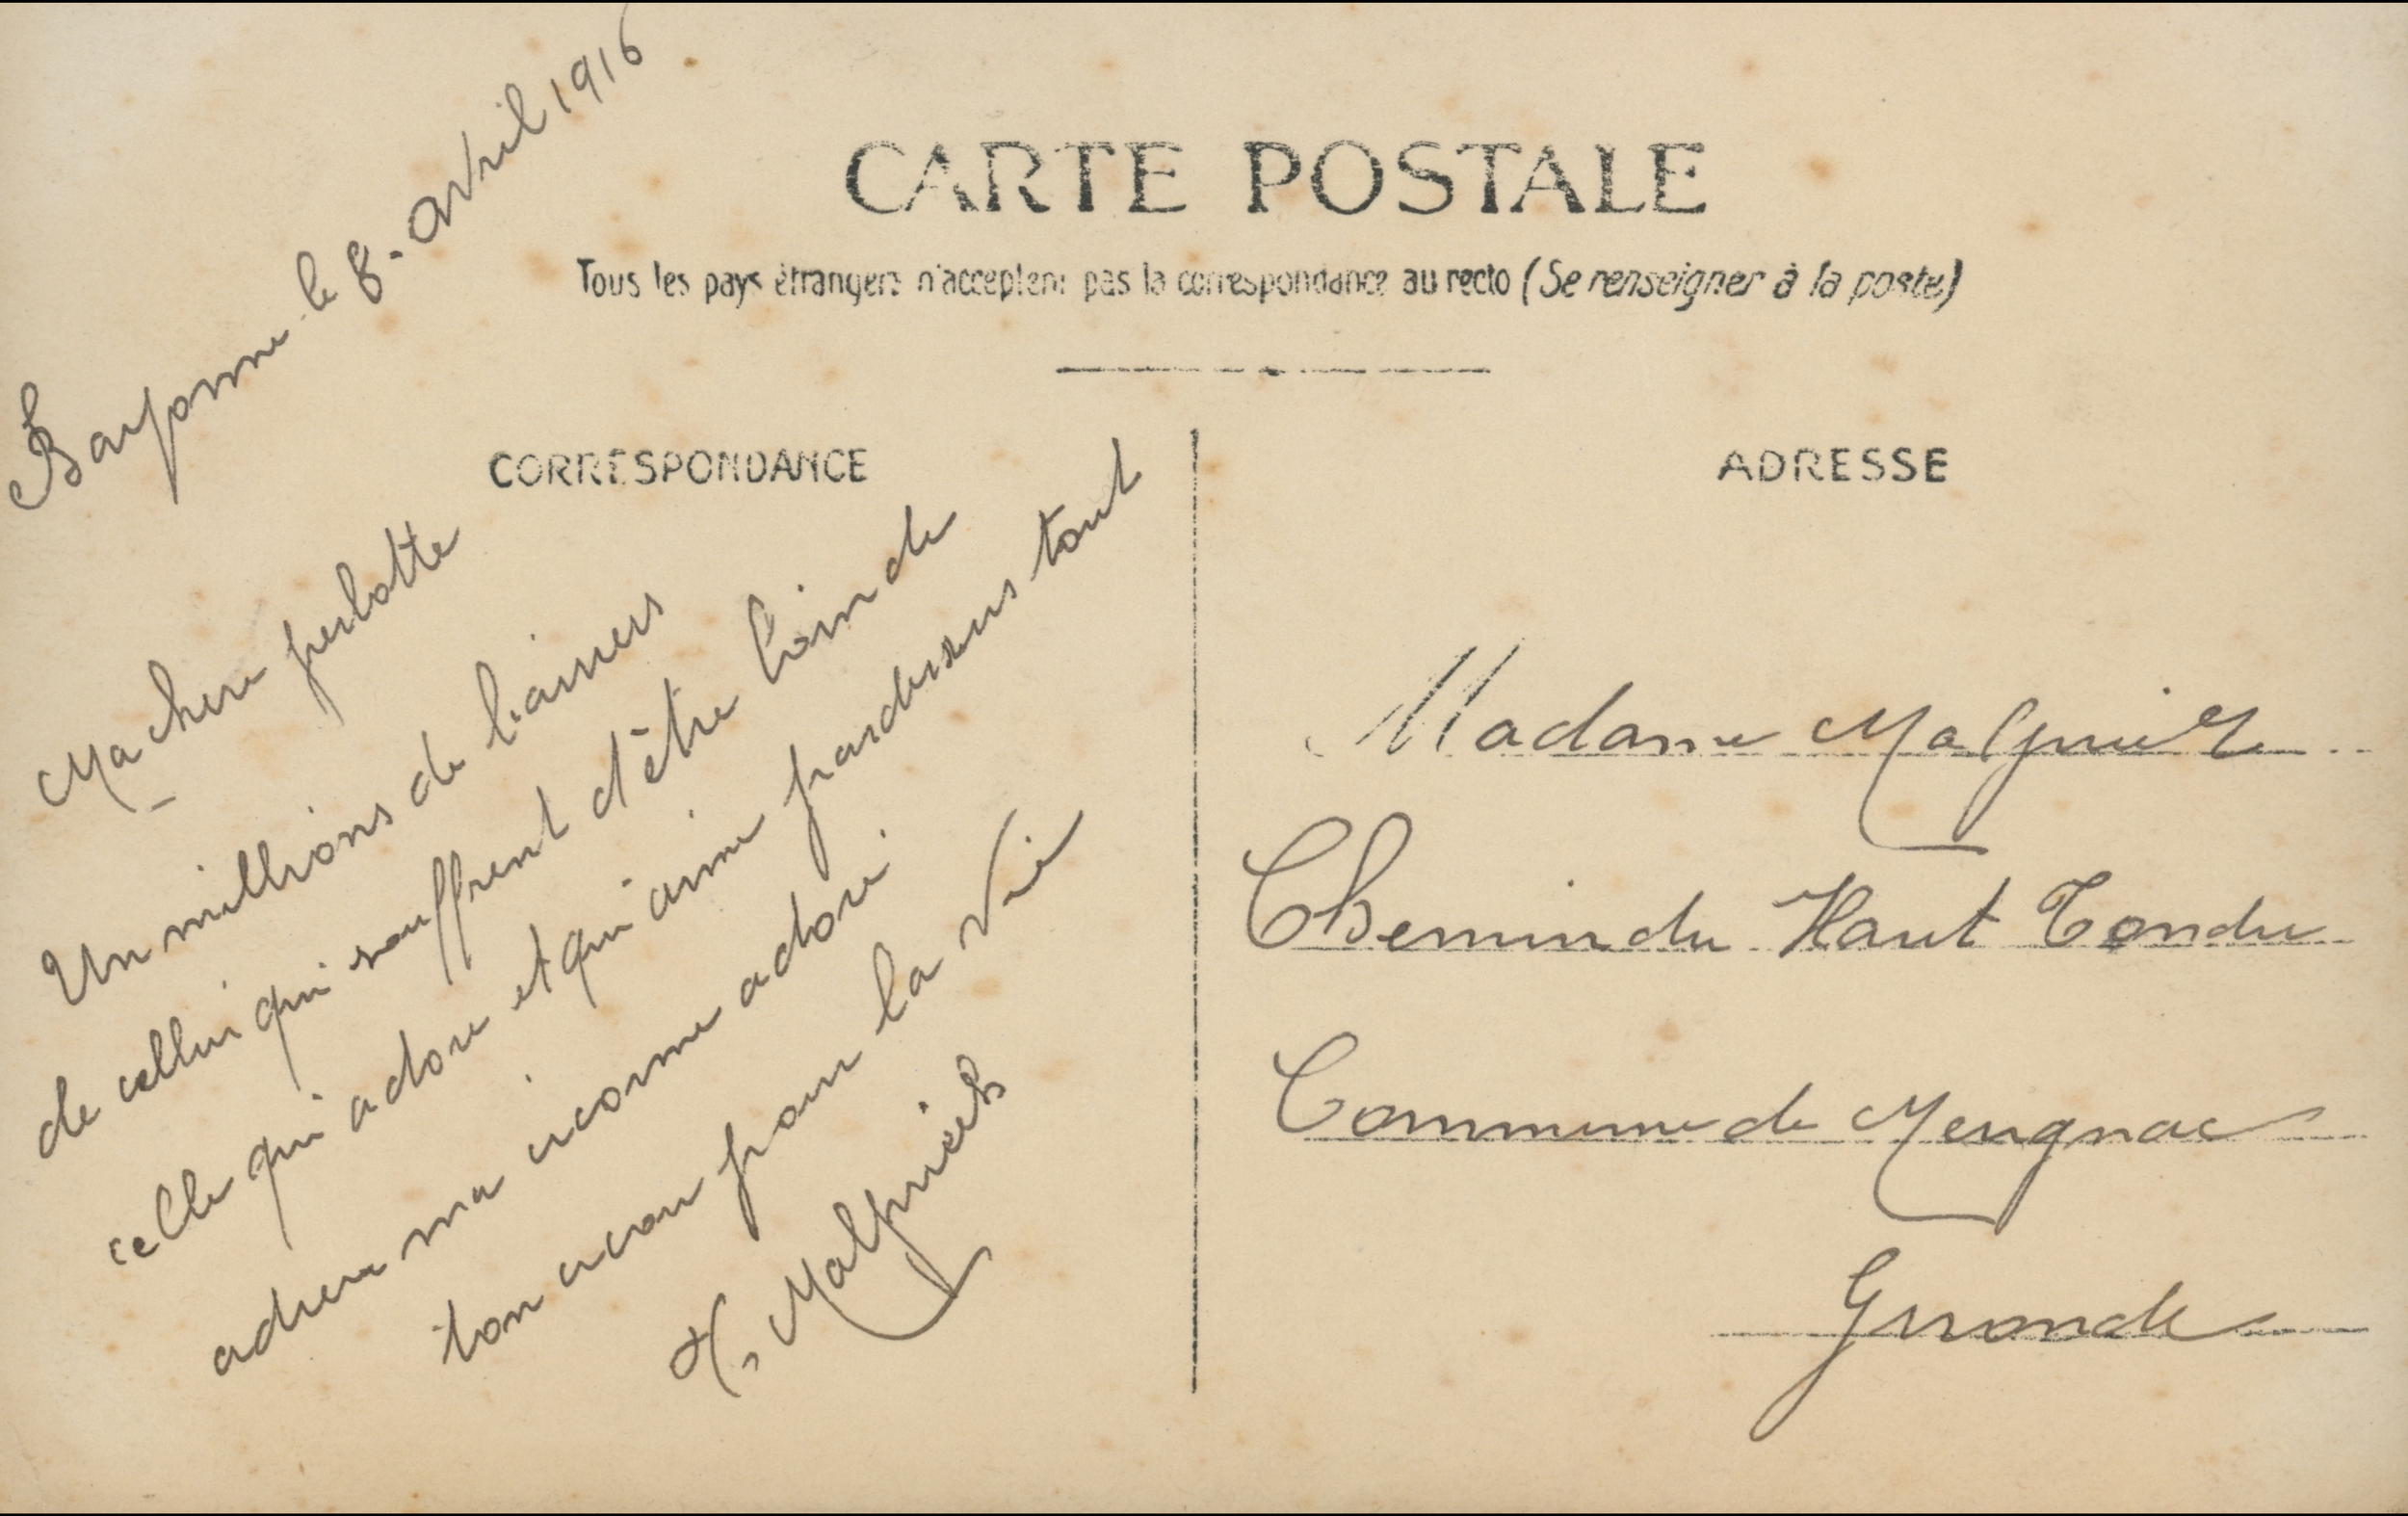 Bayonne le 8. avril 1916
CARTE POSTALE
Tous les pays étrangers n'acceptent pas la correspondance au recto (Se renseigner à la poste)
CORRESPONDANCE
Ma chere pelotte
Un millions de baisers
de cellui qui souffrent d'être loin de
celle qui adore et qui aime pardessus tout
adieu ma icorme adoré
ton pour la vie
H. Malgrieds
ADRESSE
Madame
Chemin du Haut Tondu
Commune de Merignac
Gironde